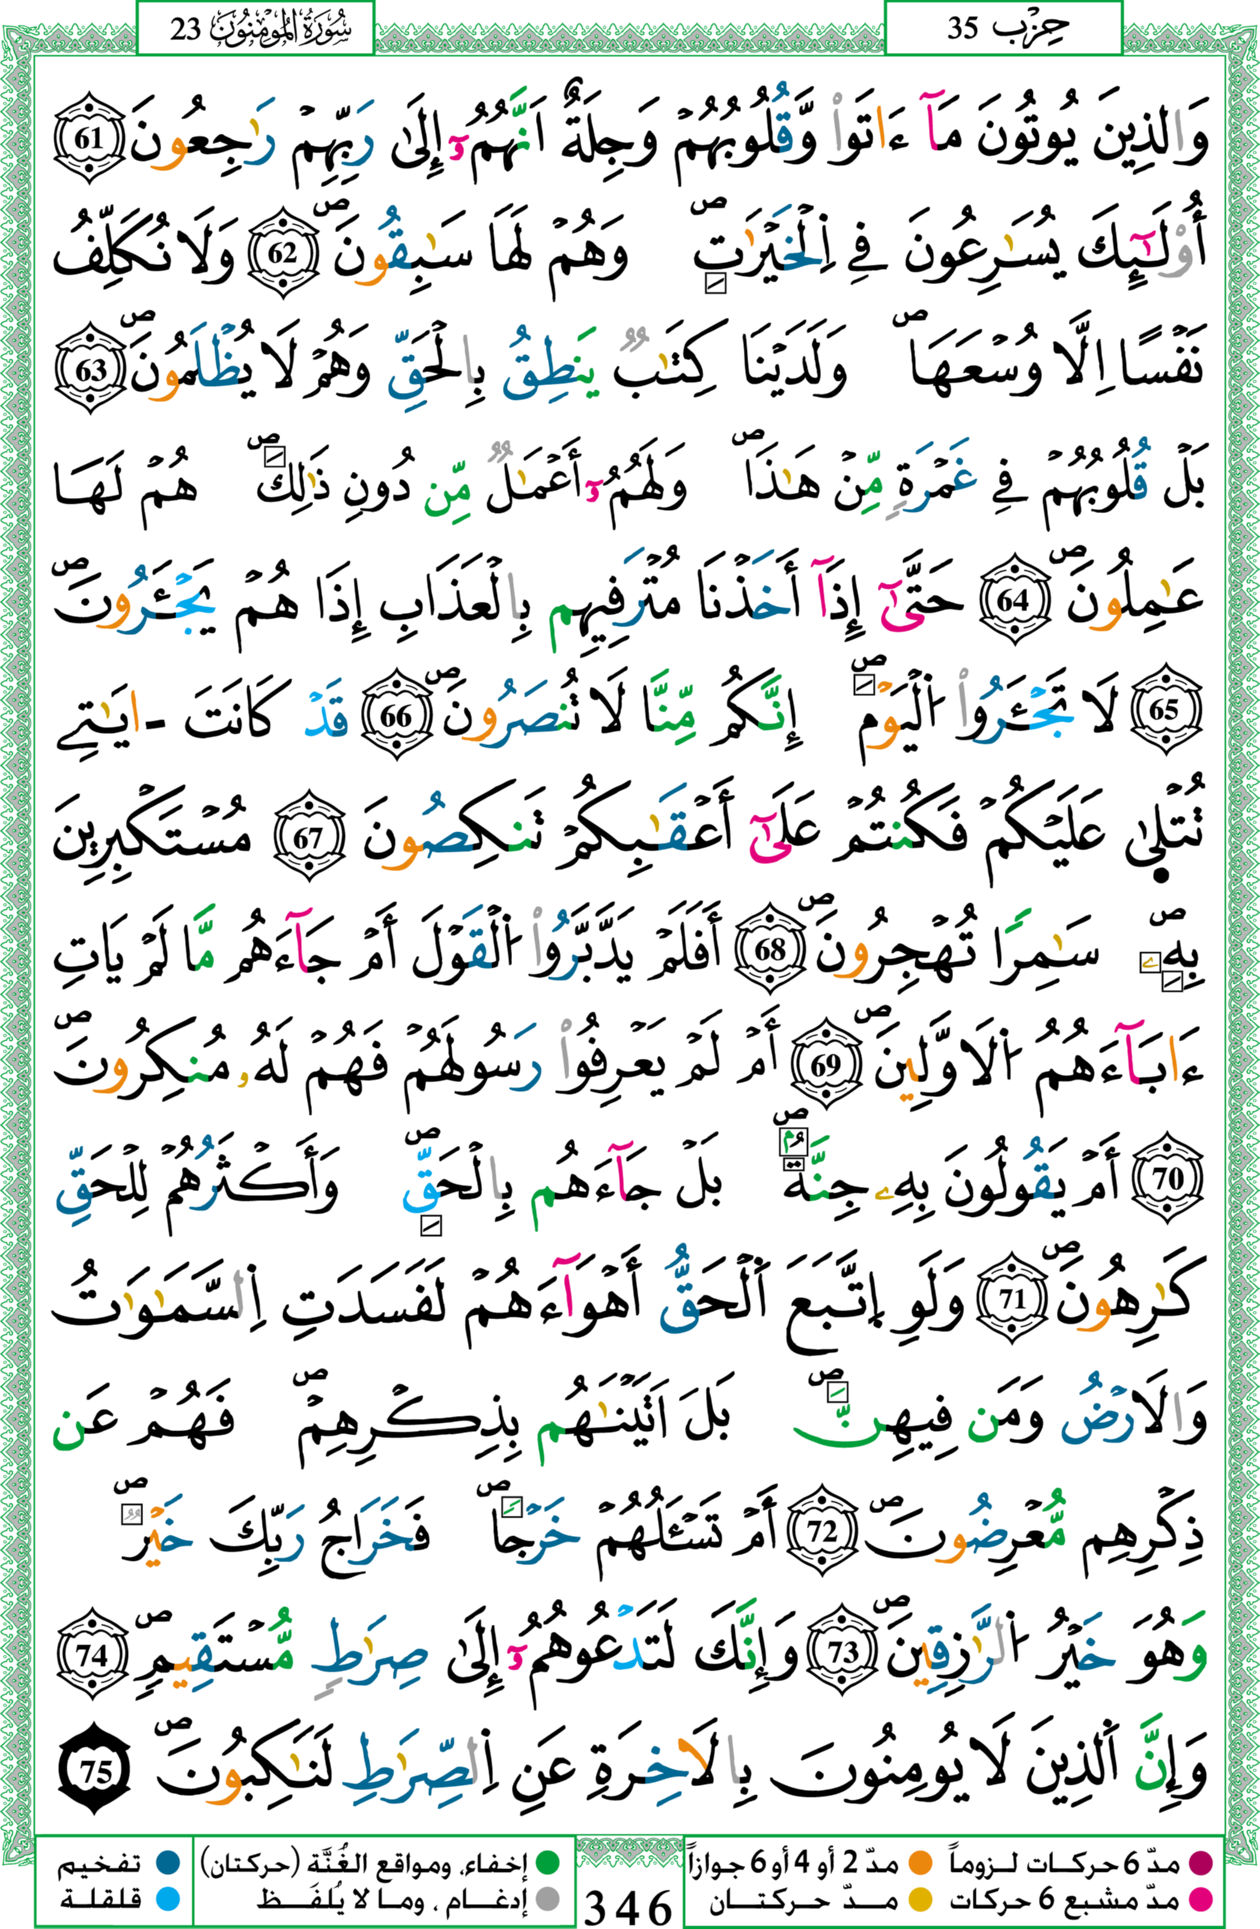 سُورَةُ المُومِنُونَ 23
حِزْب 35
وَالذِينَ يُوتُونَ مَآ ءَاتَواْ وَّقُلُوبُهُمْ وَجِلَةٌ اَنَّهُمُۥٓ إِلَىٰ رَبِّهِمْ رَٰجِعُونَ 61
أُوْلَٰٓئِكَ يُسَٰرِعُونَ فِے اِ۬لْخَيْرَٰتِۖ وَهُمْ لَهَا سَٰبِقُونَۖ 62 وَلَا نُكَلِّفُ
نَفْسًا اِلَّا وُسْعَهَاۖ وَلَدَيْنَا كِتَٰبٌ يَنطِقُ بِالْحَقِّ وَهُمْ لَا يُظْلَمُونَۖ 63
بَلْ قُلُوبُهُمْ فِے غَمْرَةٍ مِّنْ هَٰذَاۖ وَلَهُمُۥٓ أَعْمَٰلٌ مِّن دُونِ ذَٰلِكَۖ هُمْ لَهَا
عَٰمِلُونَۖ 64 حَتَّىٰٓ إِذَآ أَخَذْنَا مُتْرَفِيهِم بِالْعَذَابِ إِذَا هُمْ يَجْـَٔرُونَۖ
65 لَا تَجْـَٔرُواْ اُ۬لْيَوْمَۖ إِنَّكُم مِّنَّا لَا تُنصَرُونَۖ 66 قَدْ كَانَتَ ـ اٰيَٰتِے
تُتْلۭيٰ عَلَيْكُمْ فَكُنتُمْ عَلَىٰٓ أَعْقَٰبِكُمْ تَنكِصُونَ 67 مُسْتَكْبِرِينَ
بِهِۦۖ سَٰمِرًا تُهْجِرُونَۖ 68 أَفَلَمْ يَدَّبَّرُواْ اُ۬لْقَوْلَ أَمْ جَآءَهُم مَّا لَمْ يَاتِ
ءَابَآءَهُمُ اُ۬لَاوَّلِينَۖ 69 أَمْ لَمْ يَعْرِفُواْ رَسُولَهُمْ فَهُمْ لَهُۥ مُنكِرُونَۖ
70 أَمْ يَقُولُونَ بِهِۦ جِنَّةٌۖ بَلْ جَآءَهُم بِالْحَقِّۖ وَأَكْثَرُهُمْ لِلْحَقِّ
كَٰرِهُونَۖ 71 وَلَوِ اِ۪تَّبَعَ اَ۬لْحَقُّ أَهْوَآءَهُمْ لَفَسَدَتِ اِ۬لسَّمَٰوَٰتُ
وَالَارْضُ وَمَن فِيهِنَّۖ بَلَ اَتَيْنَٰهُم بِذِكْرِهِمْۖ فَهُمْ عَن
ذِكْرِهِم مُّعْرِضُونَۖ 72 أَمْ تَسْـَٔلُهُمْ خَرْجاًۖ فَخَرَاجُ رَبِّكَ خَيْرٌۖ
وَهُوَ خَيْرُ اُ۬لرَّٰزِقِينَۖ 73 وَإِنَّكَ لَتَدْعُوهُمُۥٓ إِلَىٰ صِرَٰطٍ مُّسْتَقِيمٍۖ 74
وَإِنَّ اَ۬لذِينَ لَا يُومِنُونَ بِالَاخِرَةِ عَنِ اِ۬لصِّرَٰطِ لَنَٰكِبُونَۖ 75
مدّ 6 حركات لـزوماً
مدّ 2 أو 4 أو 6 جوازاً
إخفاء، ومواقع الغُنَّة (حركتان)
تفخيم
مدّ مشبع 6 حركات
مــدّ حـركتــان
إدغــام ، ومـا لا يُلفَـظ
قلقلة
346